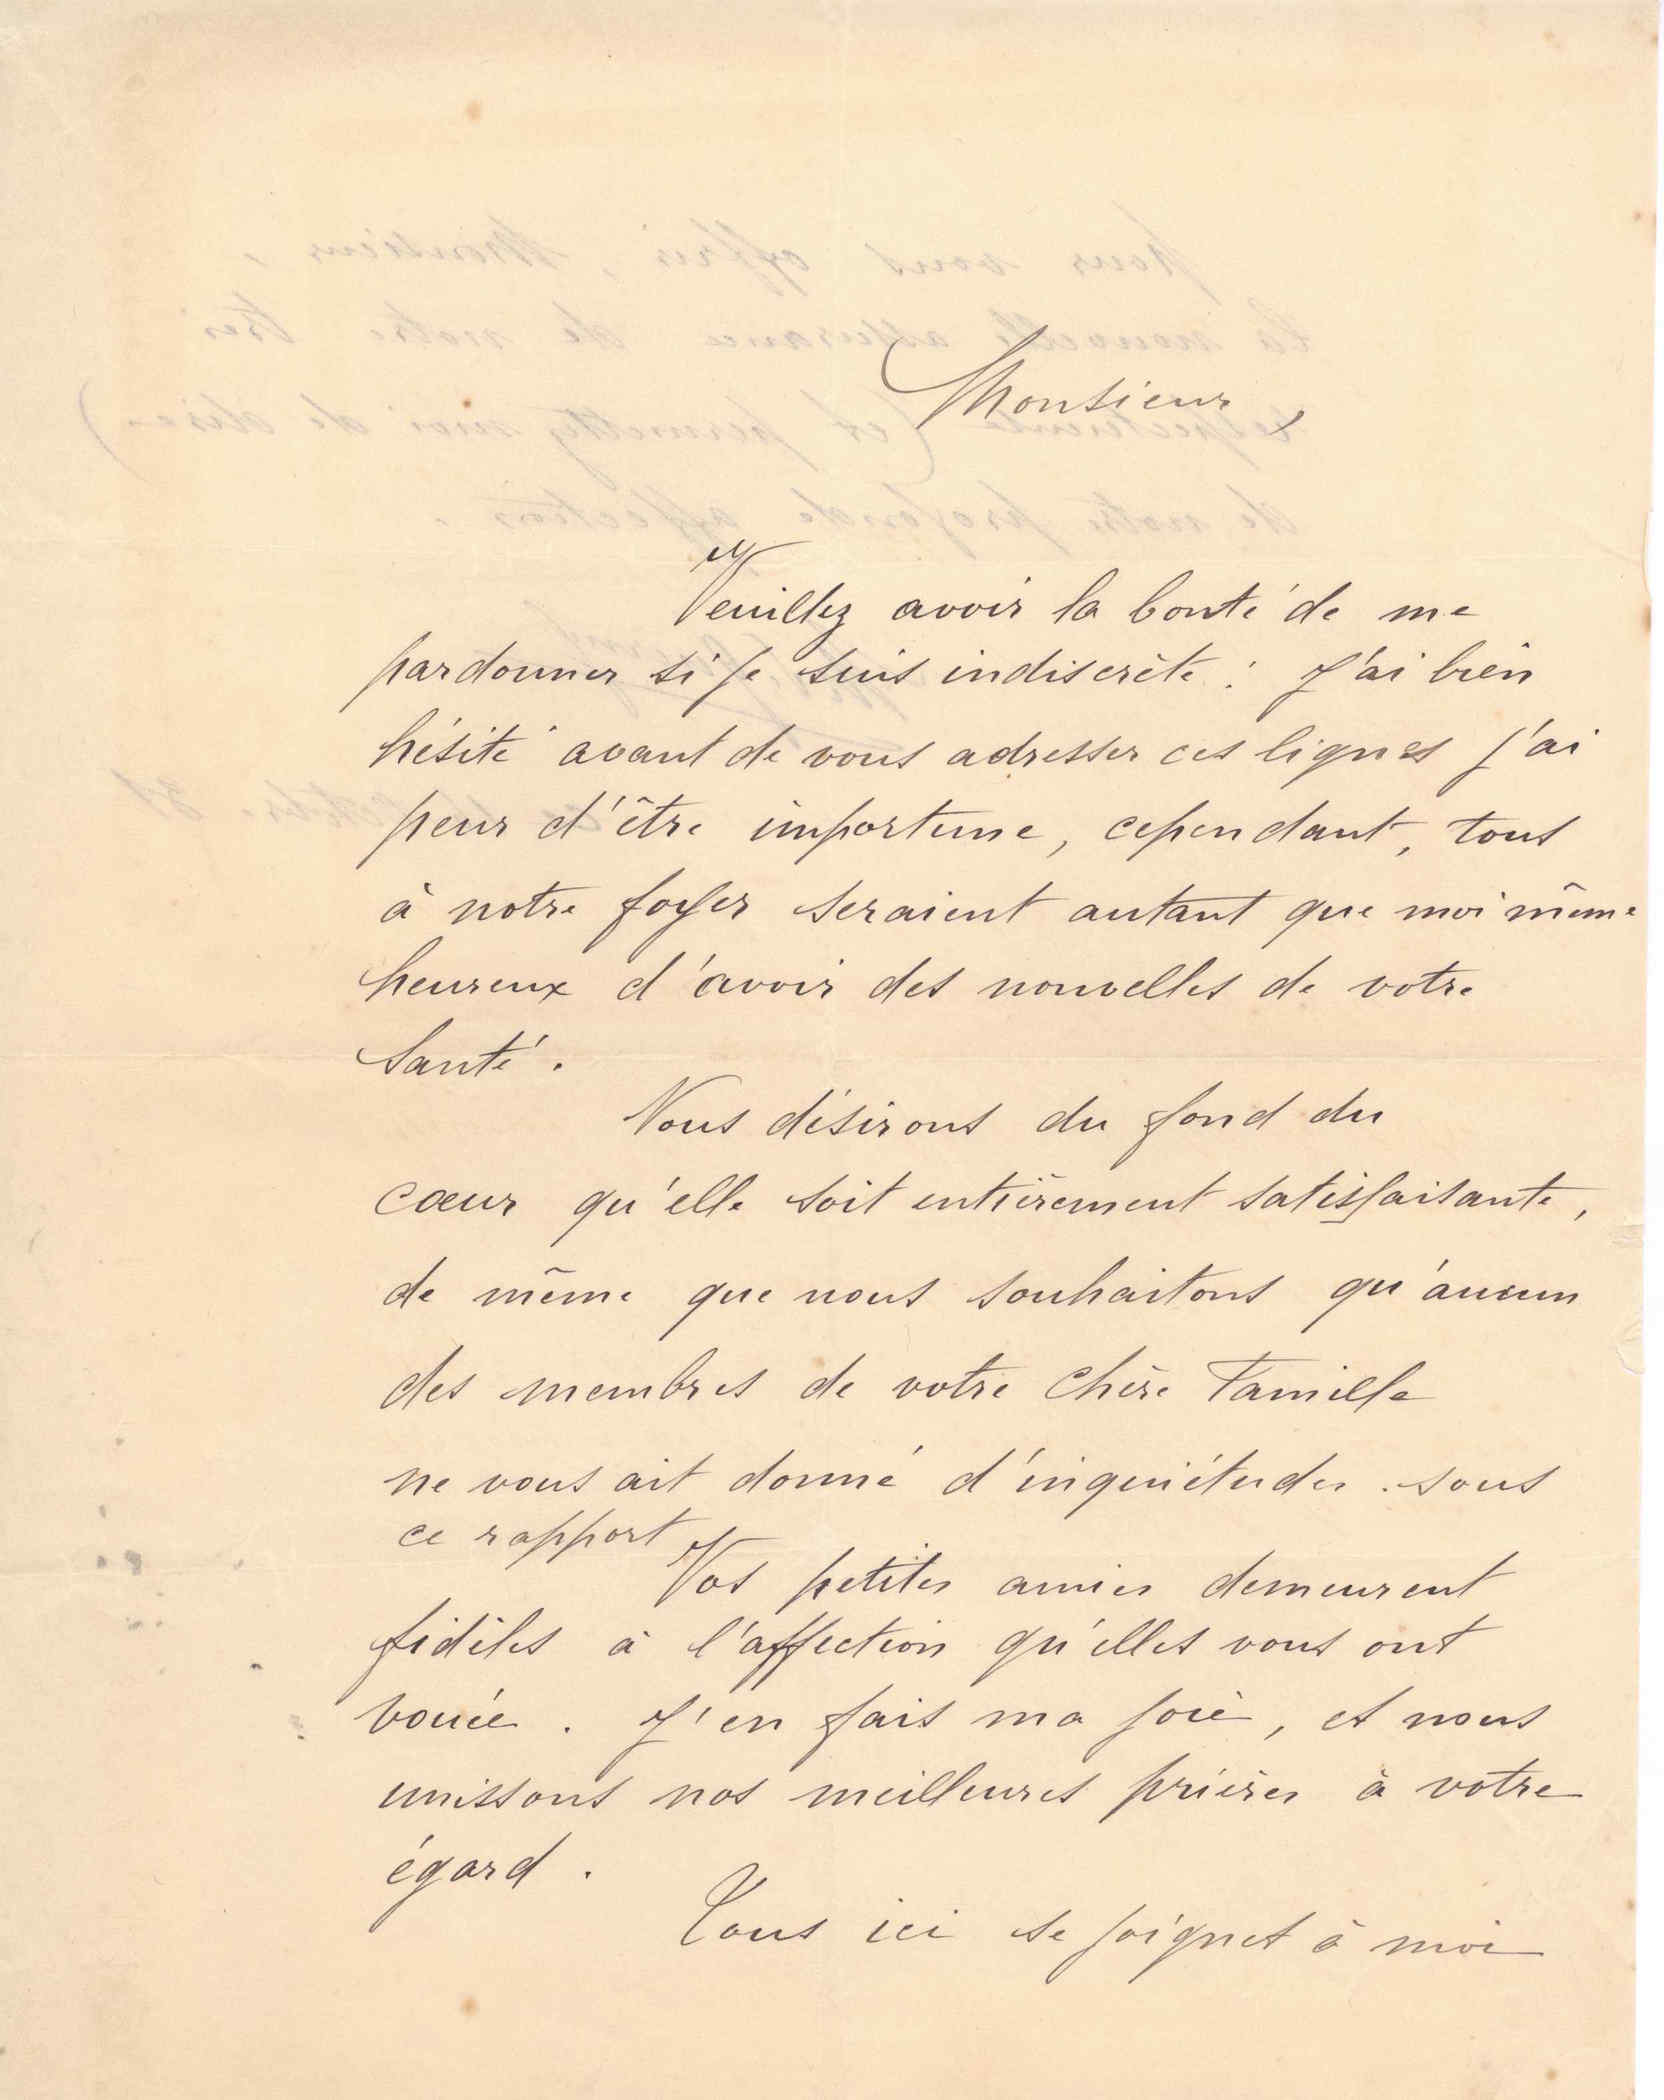 Monsieur,
Veuillez avoir la bonté de me
pardonner si je suis indiscrète : J'ai bien
hésité avant de vous adresser ces lignes j'ai
peur d'être importune, cependant, tous
à notre foyer seraient autant que moi même
heureux d'avoir des nouvelles de votre
Santé.
Nous désirons du fond du
cœur qu'elle soit entièrement satisfaisante,
de même que nous souhaitons qu'aucun
des membres de votre chère Famille
ne vous ait donné d'inquiétudes. sous
ce rapport
Vos petites amies demeurent
fidèles à l'affection qu'elles vous ont
vouée. J'en fais ma joie, et nous
unissons nos meilleures prières à votre
égard.
Tous ici se joignet à moi